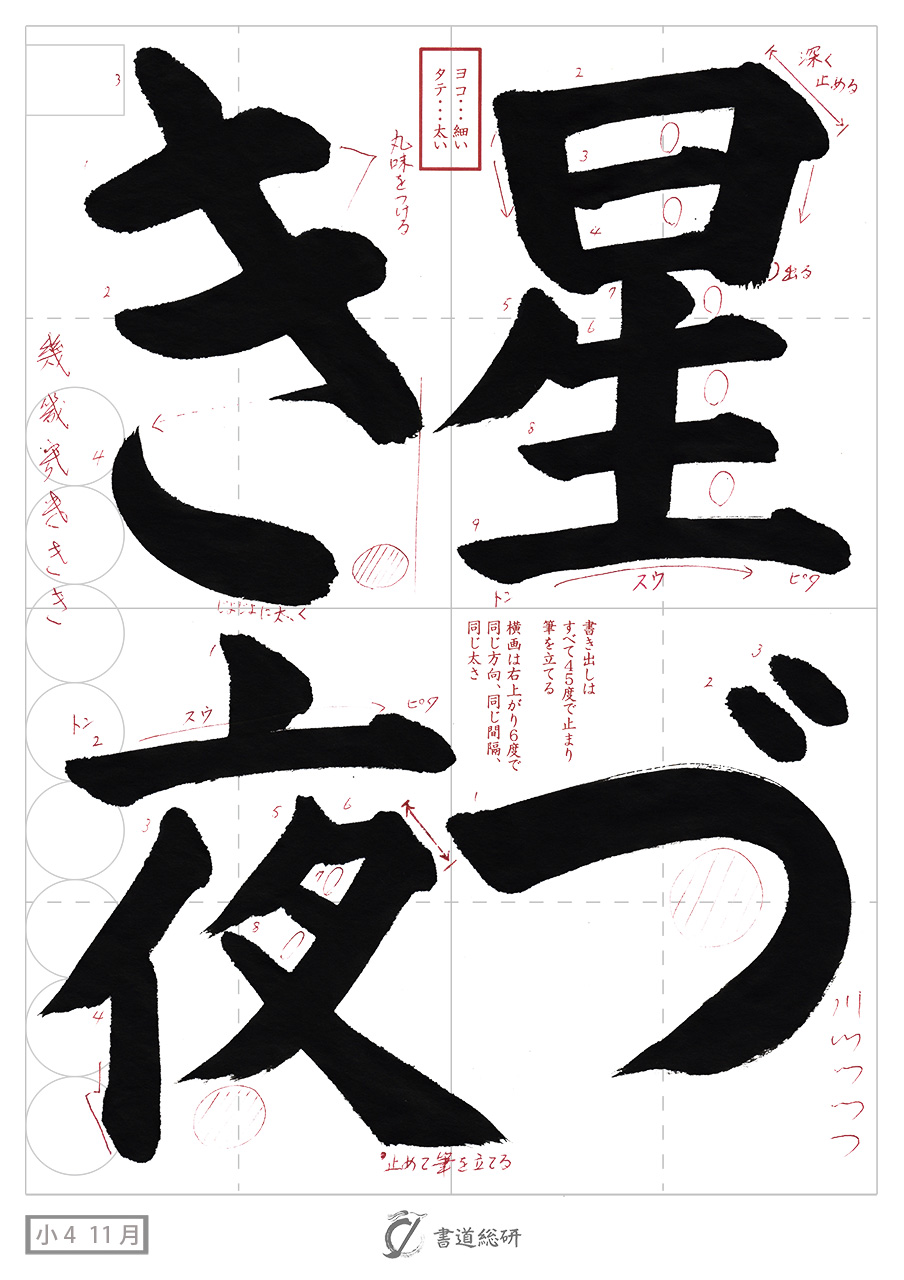 星づ
き夜
ヨコ・・・細い
タテ・・・太い
深く
止める
丸味をつける
出る
トン
スウ
ピタ
幾
き
き
き
じょじょに太く
書き出しは
すべて45度で止まり
筆を立てる
横画は右上がり6度で
同じ方向、同じ間隔、
同じ太さ
トン
スウ
ピタ
川
つ
つ
つ
止めて筆を立てる
小4 11月
書道総研